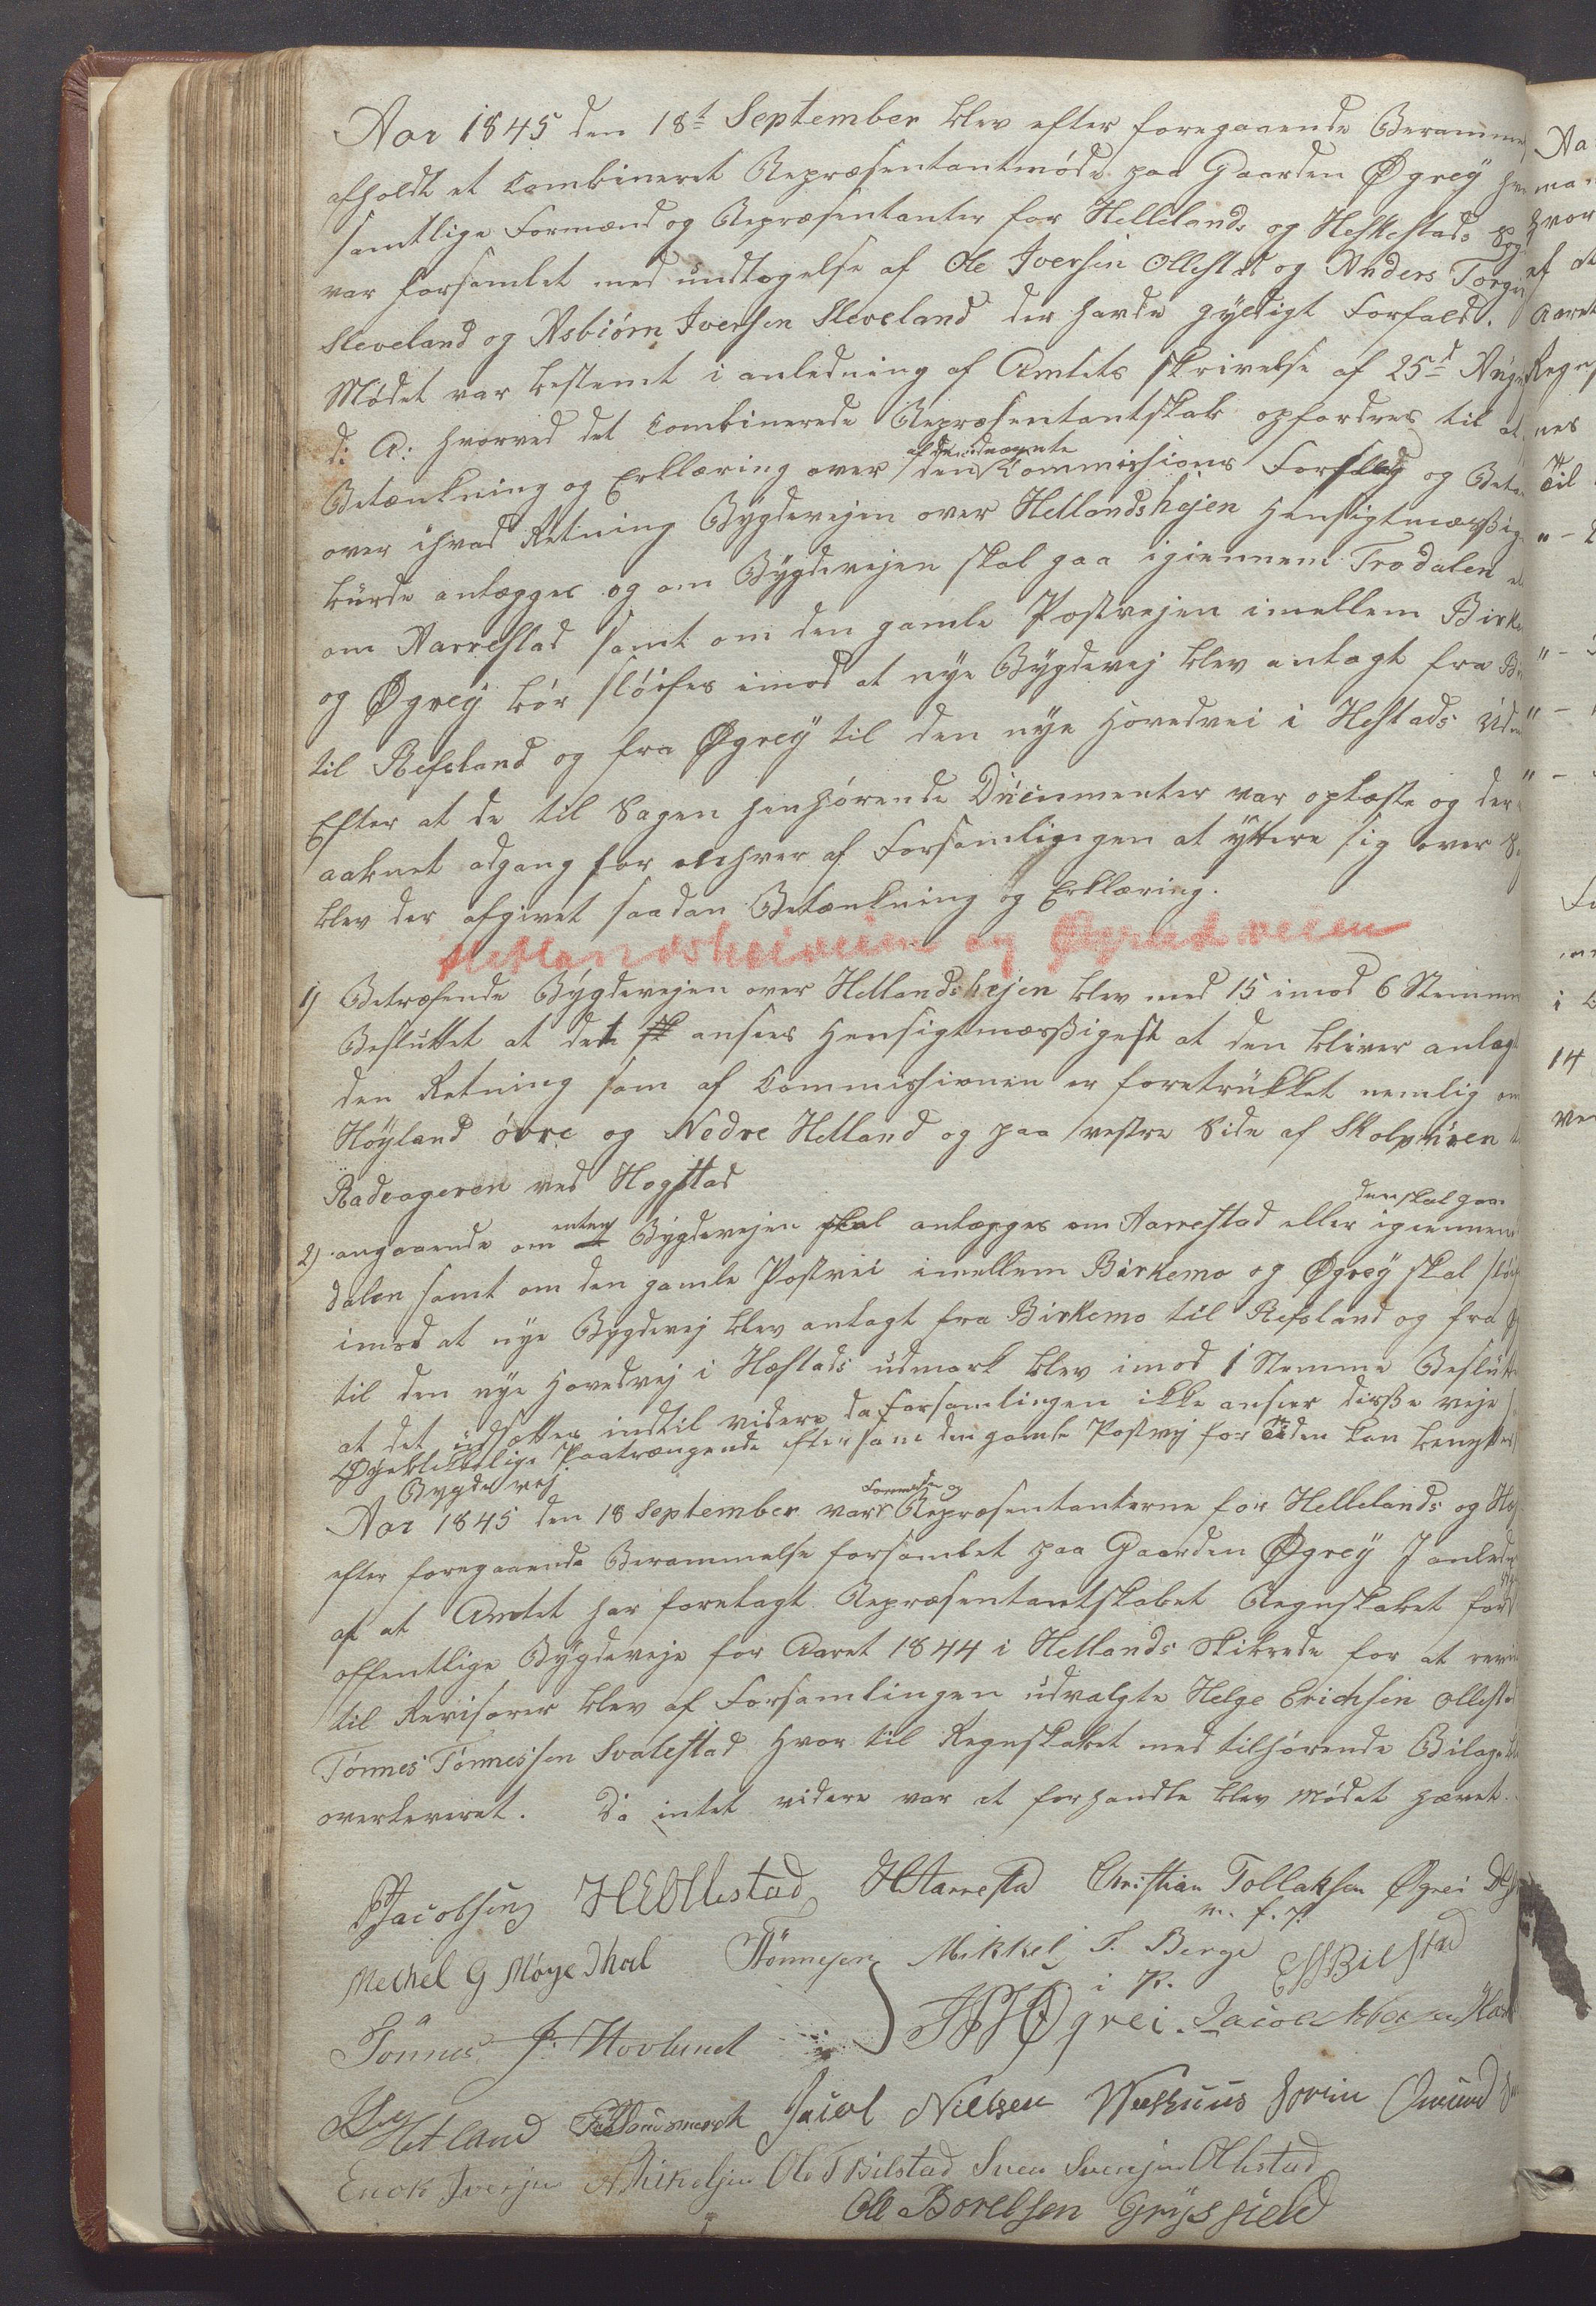 Aar 1845 den 18t September blev efter foregaaende Beramme
afholdt et Combineret Repræsentantmøde paa Gaarden Øgreÿ
samtlige Formænd og Repræsentanter for Hellelands og Heskestads
var forsamlet med undtagelse af Ole Iversen Ollestad og Anders
Sleveland og Asbiørn Iversen Sleveland der havde gyldigt Forfald.
Mødet var bestemt i anledning af Amtets skrivelse af 25d
d: A: hvorved det Combinerede Repræsentantskab opfordres til at
af de udnævnte
Betænkning og Erklæring over den Commissions Forslag og
over i hvad Retning Bÿgdevejen over Hetlandshejen Hensigtmæssig
burde anlægges og om Bÿgdevejen skal gaa igiennem Trodalen
om Aarrestad samt om den gamle Postvejen imellem
og Øgreÿ bør sløifes imod at nye Bÿgdevej blev anlagt fra
til Refsland og fra Øgreÿ til den nye Hovedvei i Hestads
Efter at de til Sagen henhørende Documenter var oplæste og
aabnet adgang for enhver af Forsamlingen at ÿttre sig over
blev der afgivet saadan Betænkning og Erklæring.
Hetlandsheiveien og Øgreid veien
1) Betræfende Bÿgdevejen over Hetlandshejen blev med 15 imod 6 Stemmer
Besluttet at det ansees Hensigtmæssigest at den bliver anlagt
den Retning som af Commissionen er foretrukket nemlig om
Høÿland øvre og Nedre Hetland og paa vestre Side af
ved Hogstad
enten
den skal gaa
2) angaaende om Bÿgdevejen skal anlægges om Aarrestad eller igiennem
dalen samt om den gamle Postvei imellem Birkemo og Øgreÿ skal
imod at nye Bÿgdevej blev anlagt fra Birkemo til Refsland og fra
til den nye Hovedvej i Hæstads udmark blev imod 1 Stemme
at det udsættes indtil videre da forsamlingen ikke anseer disse veje
Øyeblikkelige Paatrængende eftersom den gamle Postvej for Tiden kan
Bygdevej
Formænd og
Aar 1845 den 18 September var Repræsentanterne for Hellelands og
efter foregaaende Berammelse forsamlet paa Gaarden Øgreÿ I
af at Amtet har forelagt Repræsentantskabet Regnskabet for
offentlige Bÿgdeveje for Aaret 1844 i Hetlands Skibrede for at
til Revisorer blev af Forsamlingen udvalgte Helge Erichsen
Tønnes Tønnessen Svalestad hvor til Regnskabet med tilhørende Bilage
overleveret. Da intet videre var at forhandle blev Mødet hævet.
Jacobsen HEOllestad HAarrestad Christian Tollaksen Øgrei
m. f. P.
Mechel G Møgedhal TTönnesen Mikkel T. Berge
i P.
Tönnes J. Hovland Øgrei
Hetland Jacob Nielsen
Enok Iversen AMikelsen Ole T Bilstad Sven Svensen Ollestad
Ole Borelsen